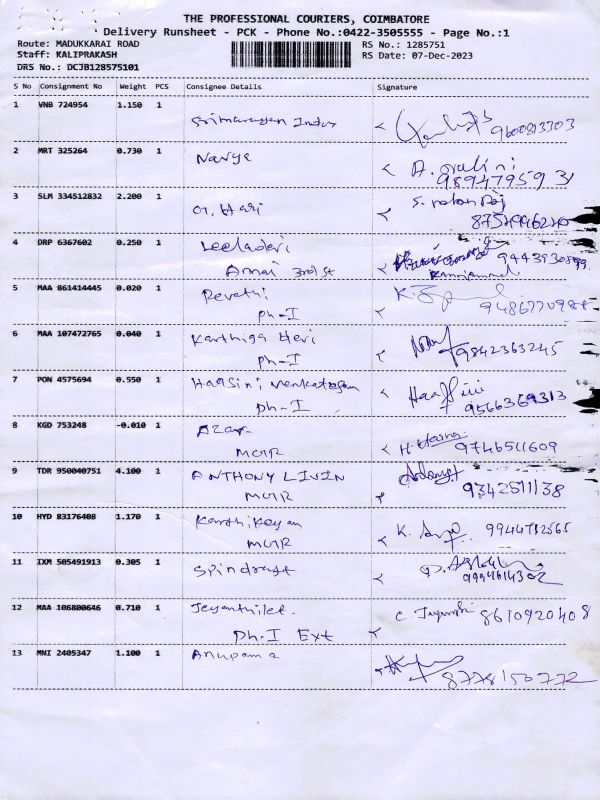 THE PROFESSIONAL COURIERS, COIMBATORE
Delivery Runsheet - PCK - Phone No.:0422-3505555 - Page No.:1
Route: MADUKKARAI ROAD RS No.: 1285751
Staff: KALIPRAKASH RS Date: 07-Dec-2023
DRS No.: DCJB128575101
S No Consignment No Weight PCS Consignee Details Signature
1 VNB 724954 1.150 1
9600813303
2 MRT 325264 0.730 1
Navya
9894779593
3 SLM 334512832 2.200 1
G. Hari
4 DRP 6367602 0.250 1 Leeladevi
Annai 3rd st
5 MAA 861414445 0.020 1 Revathi
Ph-I
6 MAA 107472765 0.040 1 Karthiga Heri
Ph-I 9842363245
7 PON 4575694 0.550 1 Haasini Venkatesan
Ph-I 9566369313
8 KGD 753248 -0.010 1
MGR 9746511609
9 TDR 950040751 4.100 1 ANTHONY LIVIN
MGR 9342511138
10 HYD 83176408 1.170 1 Karthikeyan
MGR 9944712565
11 IXM 505491913 0.305 1
Spindraft
9994614302
12 MAA 106800646 0.710 1 8610920408
Ph-I Ext
13 MNI 2405347 1.100 1 Anupama
8778150772